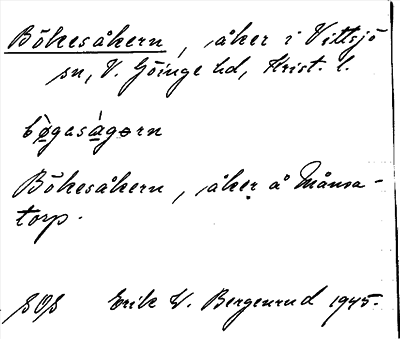 Bökesåkern, åker i Vittsjö
sn, V. Göinge hd, Krist. l.
bøgasågərn
Bökesåkern, åker å Månsa-
torp.
SOS Erik W. Bergenrud 1945.